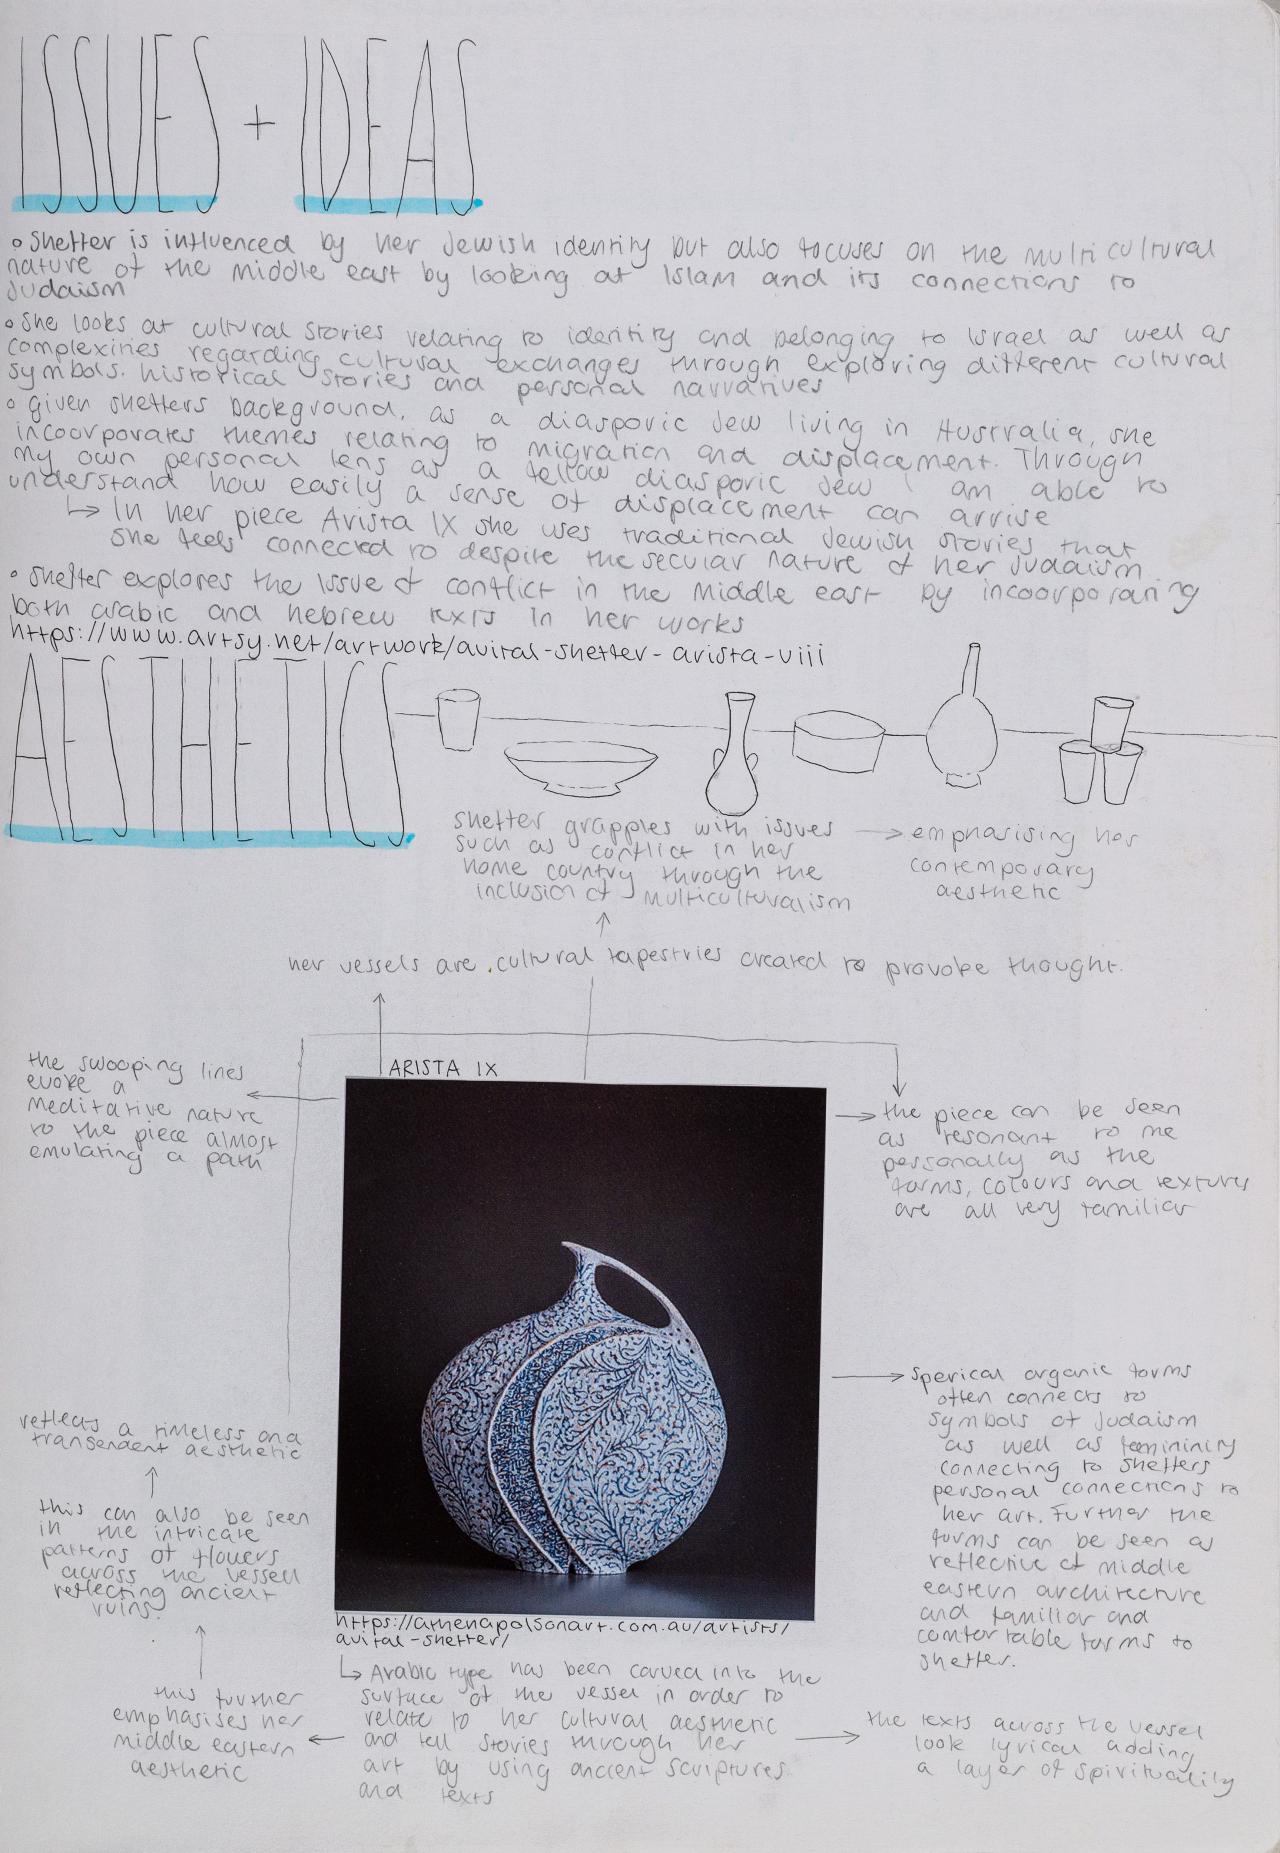 ISSUES + IDEAS
• Sheffer is influenced by her Jewish identity but also focuses on the multicultural
nature of the middle east by looking at Islam and its connections to
Judaism
• She looks at cultural stories relating to identity and belonging to Israel as well as
complexities regarding cultural exchanges through exploring different cultural
symbols. historical stories and personal narratives
• given sheffers background, as a diasporic Jew living in Australia, she
incoorporates themes relating to migration and displacement. Through
my own personal lens as a fellow diasporic Jew I am able to
understand how easily a sense of displacement can arrise
↳ In her piece Arista IX she uses traditional Jewish stories that
she feels connected to despite the secular nature of her Judaism.
• Sheffer explores the issue of conflict in the Middle east by incoorporating
both arabic and hebrew texts in her works
https://www.artsy.net/artwork/avital-sheffer-arista-viii
AESTHETICS
sheffer grapples with issues
such as conflict in her
home country through the
inclusion of multiculturalism
→ emphasising her
contemporary
aesthetic
her vessels are cultural tapestries created to provoke thought.
ARISTA IX
the swooping lines
evoke a
meditative nature
to the piece almost
emulating a path
the piece can be seen
as resonant to me
personally as the
forms, colours and textures
are all very familiar
sperical organic forms
often connects to
symbols of Judaism
as well as femininity
connecting to sheffers
personal connections to
her art. Further the
forms can be seen as
reflective of middle
eastern architecture
and familiar and
comfortable forms to
sheffer.
reflects a timeless and
transendent aesthetic
this can also be seen
in the intricate
patterns of flowers
across the vessel
reflecting ancient
ruins.
https://athenapolsonart.com.au/artists/
avital-sheffer/
↳ Arabic type has been carved into the
surface of the vessel in order to
relate to her cultural aesthetic
and tell stories through her
art by using ancient scriptures
and texts
this further
emphasises her
middle eastern
aesthetic
the texts across the vessel
look lyrical adding
a layer of spirituality